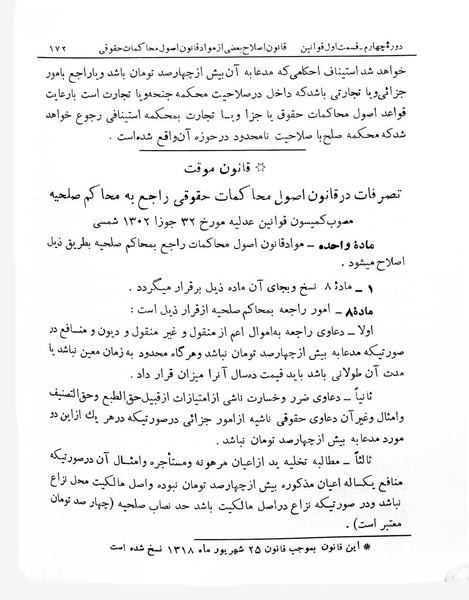 دورهٔ چهارم ـ قسمت اول قوانین قانون اصلاح بعضی از مواد قانون اصول محاکمات حقوقی ۱۷۲
خواهد شد استیناف احکامی که مدعا به آن بیش از چهارصد تومان باشد و یا راجع بامور
جزائی و یا تجارتی باشد که داخل در صلاحیت محکمه جنحه و یا تجارت است بارعایت
قواعد اصول محاکمات حقوق یا جزا و یا تجارت بمحکمه استینافی رجوع خواهد
شد که محکمه صلح با صلاحیت نامحدود در حوزه آن واقع شده است .
* قانون موقت
تصرفات در قانون اصول محاکمات حقوقی راجع به محاکم صلحیه
مصوب کمیسون قوانین عدلیه مورخ ۳۲ جوزا ۱۳۰۲ شمسی
مادهٔ واحده ـ مواد قانون اصول محاکمات راجع بمحاکم صلحیه بطریق ذیل
اصلاح میشود .
۱ ـ مادهٔ ۸ نسخ و بجای آن ماده ذیل برقرار میگردد .
مادهٔ ۸ ـ امور راجعه بمحاکم صلحیه از قرار ذیل است :
اولا ـ دعاوی راجعه به اموال اعم از منقول و غیر منقول و دیون و منافع در
صورتیکه مدعا به بیش از چهارصد تومان نباشد و هر گاه محدود به زمان معین نباشد یا
مدت آن طولانی باشد باید قیمت ده سال آنرا میزان قرار داد .
ثانیاً ـ دعاوی ضرر و خسارت ناشی از امتیازات از قبیل حق الطبع و حق التصنیف
و امثال و غیر آن دعاوی حقوقی ناشیه از امور جزائی در صورتیکه در هر یك از این دو
مورد مدعا به بیش از چهارصد تومان نباشد .
ثالثاً ـ مطالبه تخلیه ید از اعیان مرهونه و مستأجره و امثال آن در صورتیکه
منافع یکساله اعیان مذکوره بیش از چهارصد تومان نبوده و اصل مالکیت محل نزاع
نباشد و در صورتیکه نزاع در اصل مالکیت باشد حد نصاب صلحیه (چهار صد تومان
معتبر است) .
* این قانون بموجب قانون ۲۵ شهریور ماه ۱۳۱۸ نسخ شده است